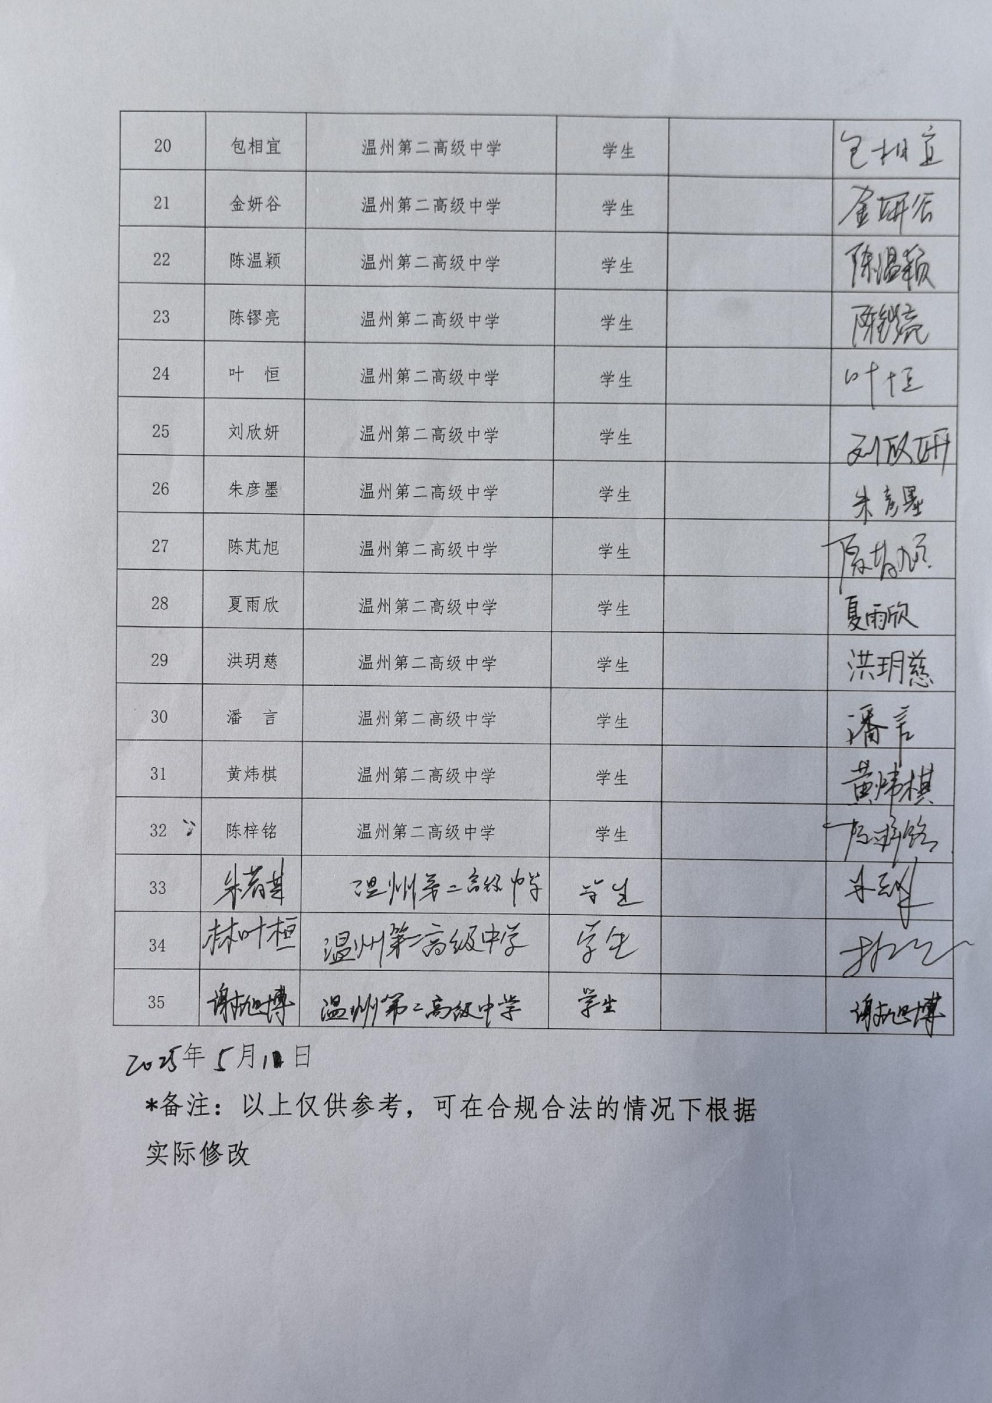 20 包相宜 温州第二高级中学 学生 包相宜
21 金妍谷 温州第二高级中学 学生 金妍谷
22 陈温颖 温州第二高级中学 学生 陈温颖
23 陈镠亮 温州第二高级中学 学生 陈镠亮
24 叶 恒 温州第二高级中学 学生 叶恒
25 刘欣妍 温州第二高级中学 学生 刘欣妍
26 朱彦墨 温州第二高级中学 学生 朱彦墨
27 陈芃旭 温州第二高级中学 学生 陈芃旭
28 夏雨欣 温州第二高级中学 学生 夏雨欣
29 洪玥慈 温州第二高级中学 学生 洪玥慈
30 潘 言 温州第二高级中学 学生 潘言
31 黄炜棋 温州第二高级中学 学生 黄炜棋
32 陈梓铭 温州第二高级中学 学生 陈梓铭
33 温州第二高级中学 学生
34 林叶桓 温州第二高级中学 学生
35 温州第二高级中学 学生
2025年5月 日
*备注：以上仅供参考，可在合规合法的情况下根据
实际修改